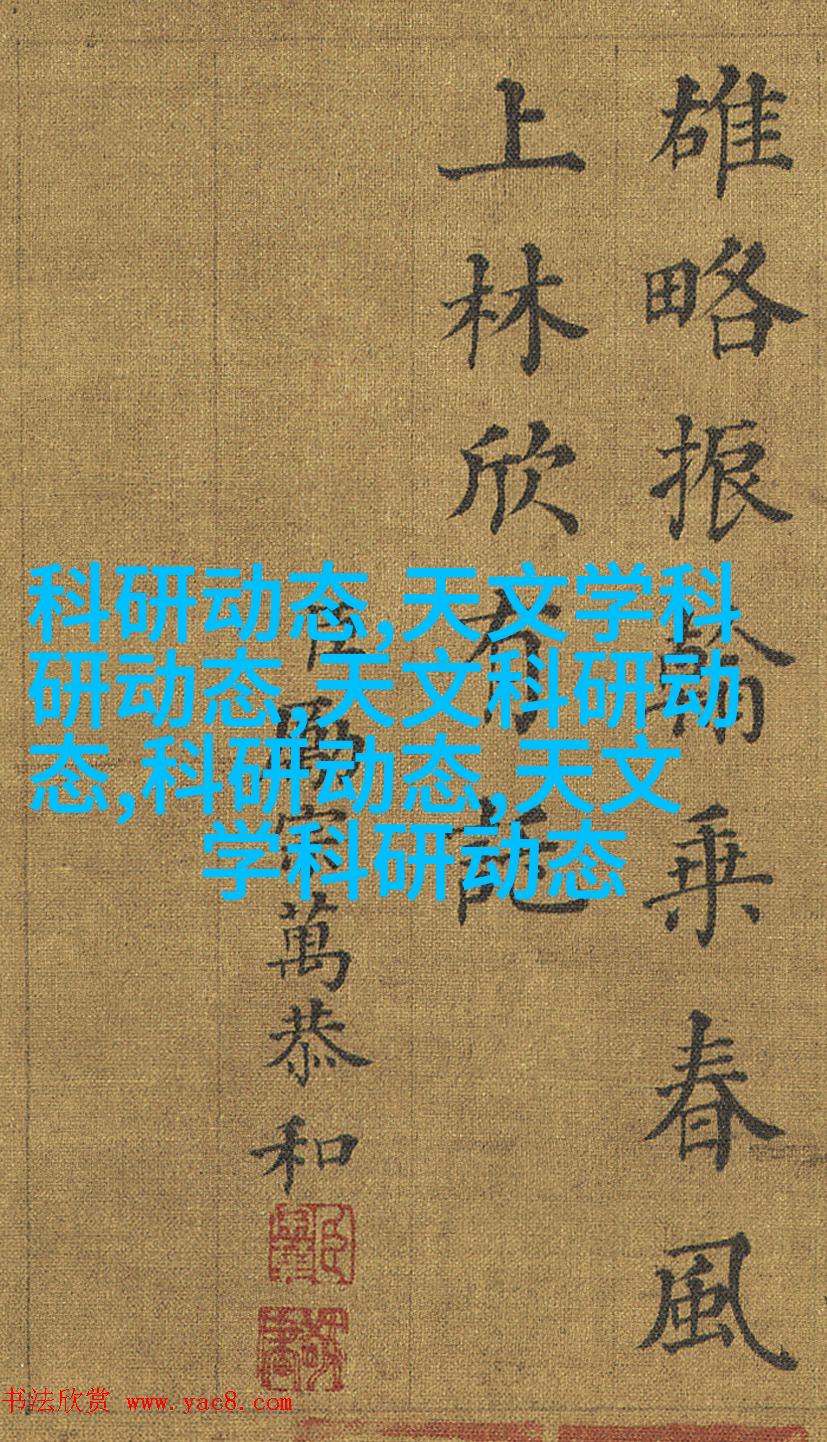 雄略振翰乘春風
上林欣有託
臣馮宗萬恭和
科研动态,天文学科
研动态,天文科研动
态,科研动态,天文
学科研动态
书法欣赏 www.yac8.com